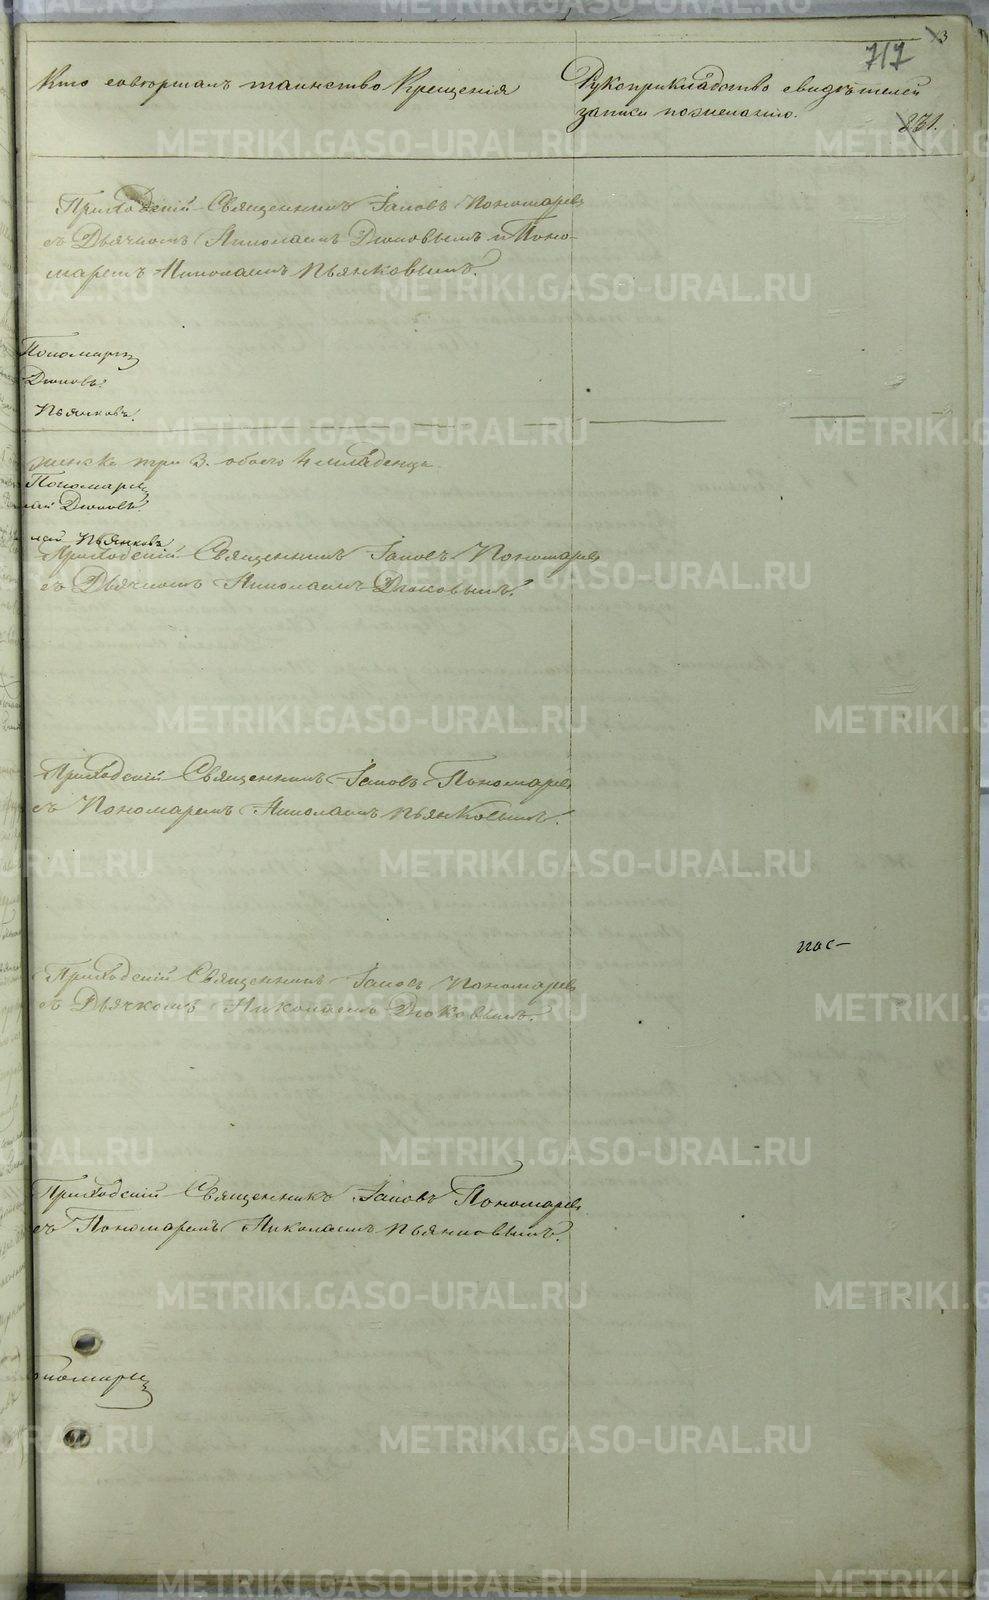 717
3
831.
Кто совершалъ таинство Крещенія
Рукоприкладство свидѣтелей
записи пожеланію.
Приходскій Священникъ Іаковъ Пономаревъ
съ Дьячкомъ Николаемъ Дюковымъ и Поно-
маремъ Николаемъ Пьянковымъ.
Пономаревъ
Дюковъ.
Пьянковъ.
женска три 3. обоего 4 младенца
Пономаревъ
лай Дюковъ.
лай Пьянковъ
Приходскій Священникъ Іаковъ Пономаревъ
съ Дьячкомъ Николаемъ Дюковымъ.
Приходскій Священникъ Іаковъ Пономаревъ
съ Пономаремъ Николаемъ Пьянковымъ.
пос-
Приходскій Священникъ Іаковъ Пономаревъ
съ Дьячкомъ Николаемъ Дюковымъ.
Приходскій Священникъ Іаковъ Пономаревъ
съ Пономаремъ Николаемъ Пьянковымъ.
ономаревъ
METRIKI.GASO-URAL.RU